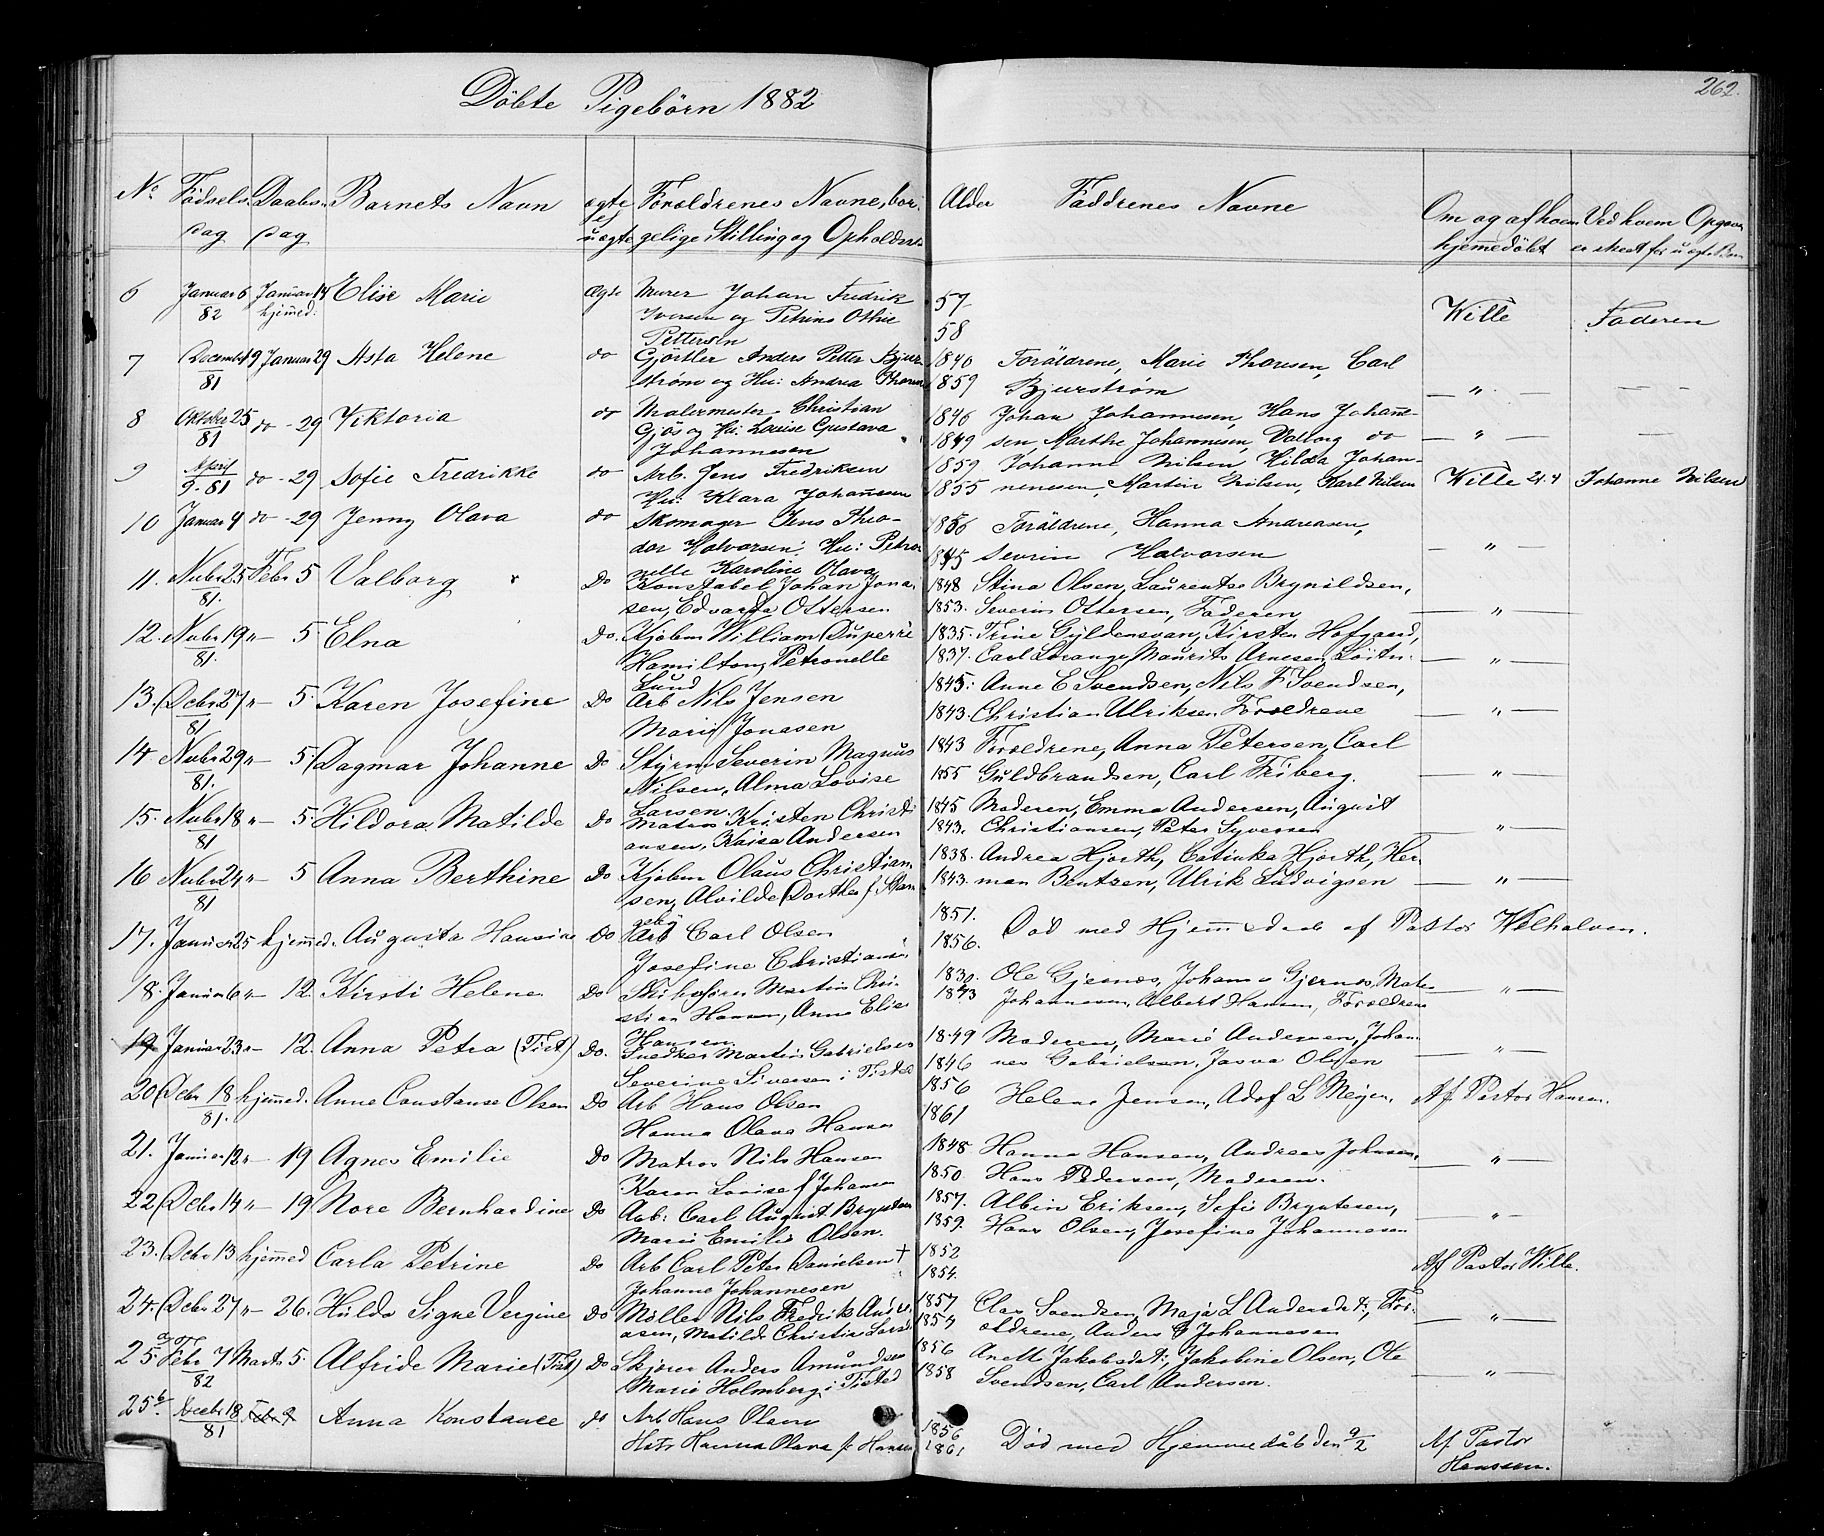 Döbte Pigebörn 1882
262.
No Födsels Daabs Barnets Navn ægte Forældrenes Navne, bor- Alder Faddrenes Navne Om og af hvem Ved hvem Opgave
dag dag uægte gelige Stilling og Opholdss hjemmedöbt er skeet for uægte Børn
6 Januar 6 Januar 14 Elise Marie Ægte Murer Johan Fredrik 57 Wille Faderen
82 hjemmed. Iversen og Petrine Othie 58
Pettersen
7 December 19 Januar 29 Asta Helene do Gjörtler Anders Petter Bjur- 1840 Forældrene, Marie Thorsen, Carl
81 ström og Hu: Andrea Thoresen 1859 Bjurström — " —
8 Oktober 25 do - 29 Viktoria do Malermester Christian 1846 Johan Johannesen, Hans Johanne-
81 Gjös og Hu: Louise Gustava 1849 sen, Marthe Johannesen, Valborg do — " —
Johannesen
9 April do - 29 Sofie Fredrikke do Arb. Jens Fredriksen 1859 Johanne Nilsen, Hilda Johan-
9 - 81 Hu: Klara Johannesen 1855 nenesen, Martin Nilsen, Karl Nilsen Wille 21.4 Johanne Nilsen
10 Januar 4 do - 29 Jenny Olava do Skomager Jens Theo- 1856 Forældrene, Hanna Andreasen,
dor Halvorsen, Hu: Petro- 1845 Severin Halvorsen — " —
nelle Karoline Olava
11. Nvbr 25 Febr 5 Valborg Do Konstabel Johan Jona- 1848 Stina Olsen, Laurentse Brynildsen,
81. sen, Edvarda Ottersen 1853. Severin Ottersen, Faderen — " —
12. Nvbr 19 " 5 Elna Do. Kjøbm William Duperré 1835. Trine Gyldensvan, Kirsten Hofgaard,
81. Hamilton, Petronelle 1837. Carl Lorange, Maurits Arnesen Löitn. — " —
Lund
13. Dcbr 27 " 5. Karen Josefine Do Arb Nils Jensen 1845. Anne E Svendsen, Nils F Svendsen,
81 Marie Jonasen 1843. Christian Ulriksen Forældrene — " —
14 Nvbr 29 " 5 Dagmar Johanne Do Styrm Severin Magnus 1843 Forældrene, Anna Petersen, Carl
81. Nilsen, Alma Lovise 1855 Guldbrandsen, Carl Friberg. "
Larsen
15. Nvbr 18 " 5 Hildora Matilde Do Matros Kristen Christi- 1845 Moderen, Emma Andersen, August
81 ansen, Kaisa Andersen 1843. Christiansen, Peter Syversen — " —
16 Nvbr 24 " 5 Anna Berthine Do Kjøbm Olaus Christian- 1838. Andrea Hjorth, Catinka Hjorth, Her-
81 sen, Alvilde Dorthea f. 1843. man Bentzen, Ulrik Ludvigsen — " —
17. Januar 25 hjemmed. Augusta Hansine Do Arb Carl Olsen 1851. Död med Hjemmedaab af Pastor
Josefine Christians- 1856.
18. Januar 6 " 12. Kirsti Helene Do Martin Chri- 1830. Ole Gjernæs, Johanne Gjernæs, Mate
stian Hansen, Anne Elise 1843 Johannesen, Albert Hansen, Forældrene — " —
Hansen.
19 Januar 23 " 12. Anna Petra (Tist) Do. Snedker Martin Gabrielsen 1849 Moderen, Marie Andersen, Johan-
Severine Siversen i Tisted 1846 nes Gabrielsen, Olsen — " —
20 Dcbr 18 hjemmed. Anne Constanse Olsen Do Arb Hans Olsen 1856 Helene Jensen, Adof L Meyer, Af Pastor Hansen.
81. Hanna Olava Hansen 1861
21. Januar 12 " 19 Agnes Emilie Do Matros Nils Hansen 1848. Hanna Hansen, Andreas Johnsen, — " —
Karen Lovise f Johansen 1850. Hans Pedersen, Moderen.
22 Dcbr 14 " 19 Nore Bernhardine Do Arb: Carl August Bryntesen 1857. Albin Eriksen, Sofie Bryntesen,
Marie Emilie Olsen. 1859. Hans Olsen, Josefine Johannesen — " —
23. Dcbr 13 hjemmed Carla Petrine Do Arb Carl Peter Danielsen † 1852 Af Pastor Wille.
Johanne Johannesen 1854.
24. Dcbr 27 " 26. Hulda Signe Vergine Do Möller Nils Fredrik Andre- 1857. Clas Svendsen, Maja L Andersdat:, For-
asen, Matilde Christine Larsen 1854 ældrene, Anders G Johannesen — " —
25. a Febr 7 Marts 5. Alfride Marie (Tist) Do Skjører Anders Amundsen 1856 Anette Jakobsdat:, Jakobine Olsen, Ole
82 Marie Holmberg i Tisted 1858 Svendsen, Carl Andersen. — " —
25 b. Decbr 18. Febr 9 Anna Konstance do Arb Hans Olsen
81 Hanna Olava f. Hansen 1856 1861 Död med Hjemmedåb den 9/2 Af Pastor
Hanssen.